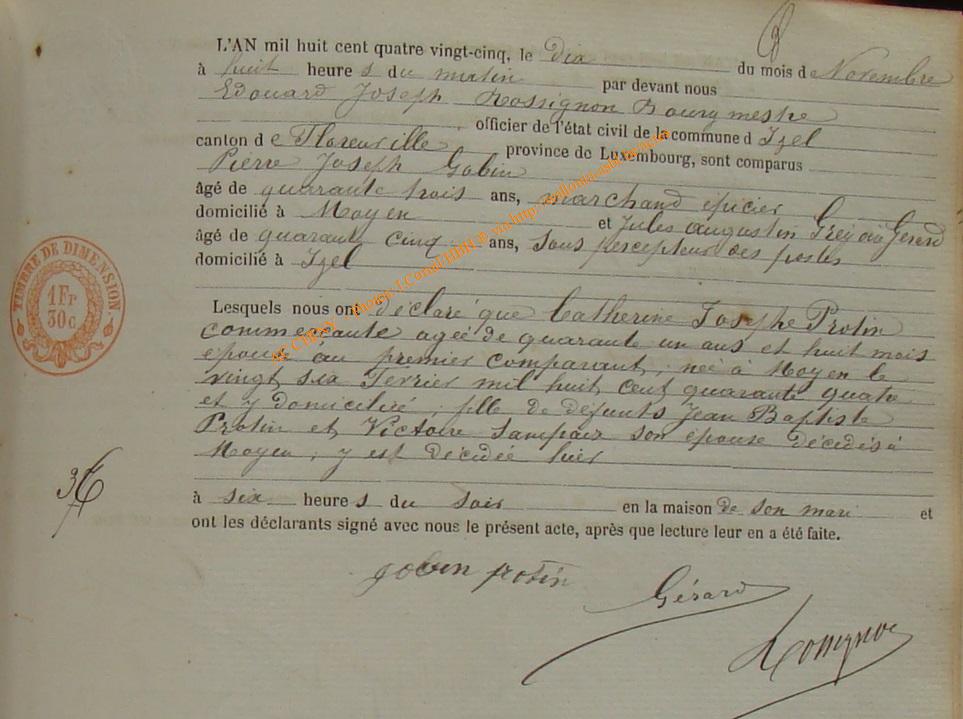 L'AN mil huit cent quatre vingt-cinq, le Dix du mois de Novembre
à huit heures du matin par devant nous
Edouard Joseph Rossignon Bourgmestre
officier de l'état civil de la commune d Izel
canton de Florenville province de Luxembourg, sont comparus
Pierre Joseph Gobin
âgé de quarante trois ans, marchand épicier
domicilié à Moyen et Jules augustin Grégoire Gerard
âgé de quarante cinq ans, Sous percepteur des postes
domicilié à Izel
Lesquels nous ont déclaré que Catherine Josephe Protin
commerçante agée de quarante un ans et huit mois
épouse au premier comparant, née à Moyen le
vingt six Février mil huit cent quarante quatre
et y domiciliée, fille de défunts Jean Baptiste
Protin et Victoire son épouse décédés à
Moyen, y est décédée hier
à six heures du soir en la maison de son mari et
ont les déclarants signé avec nous le présent acte, après que lecture leur en a été faite.
gobin protin
Gérard
Rossignon
TIMBRE DE DIMENSION.
1 Fr
30 c